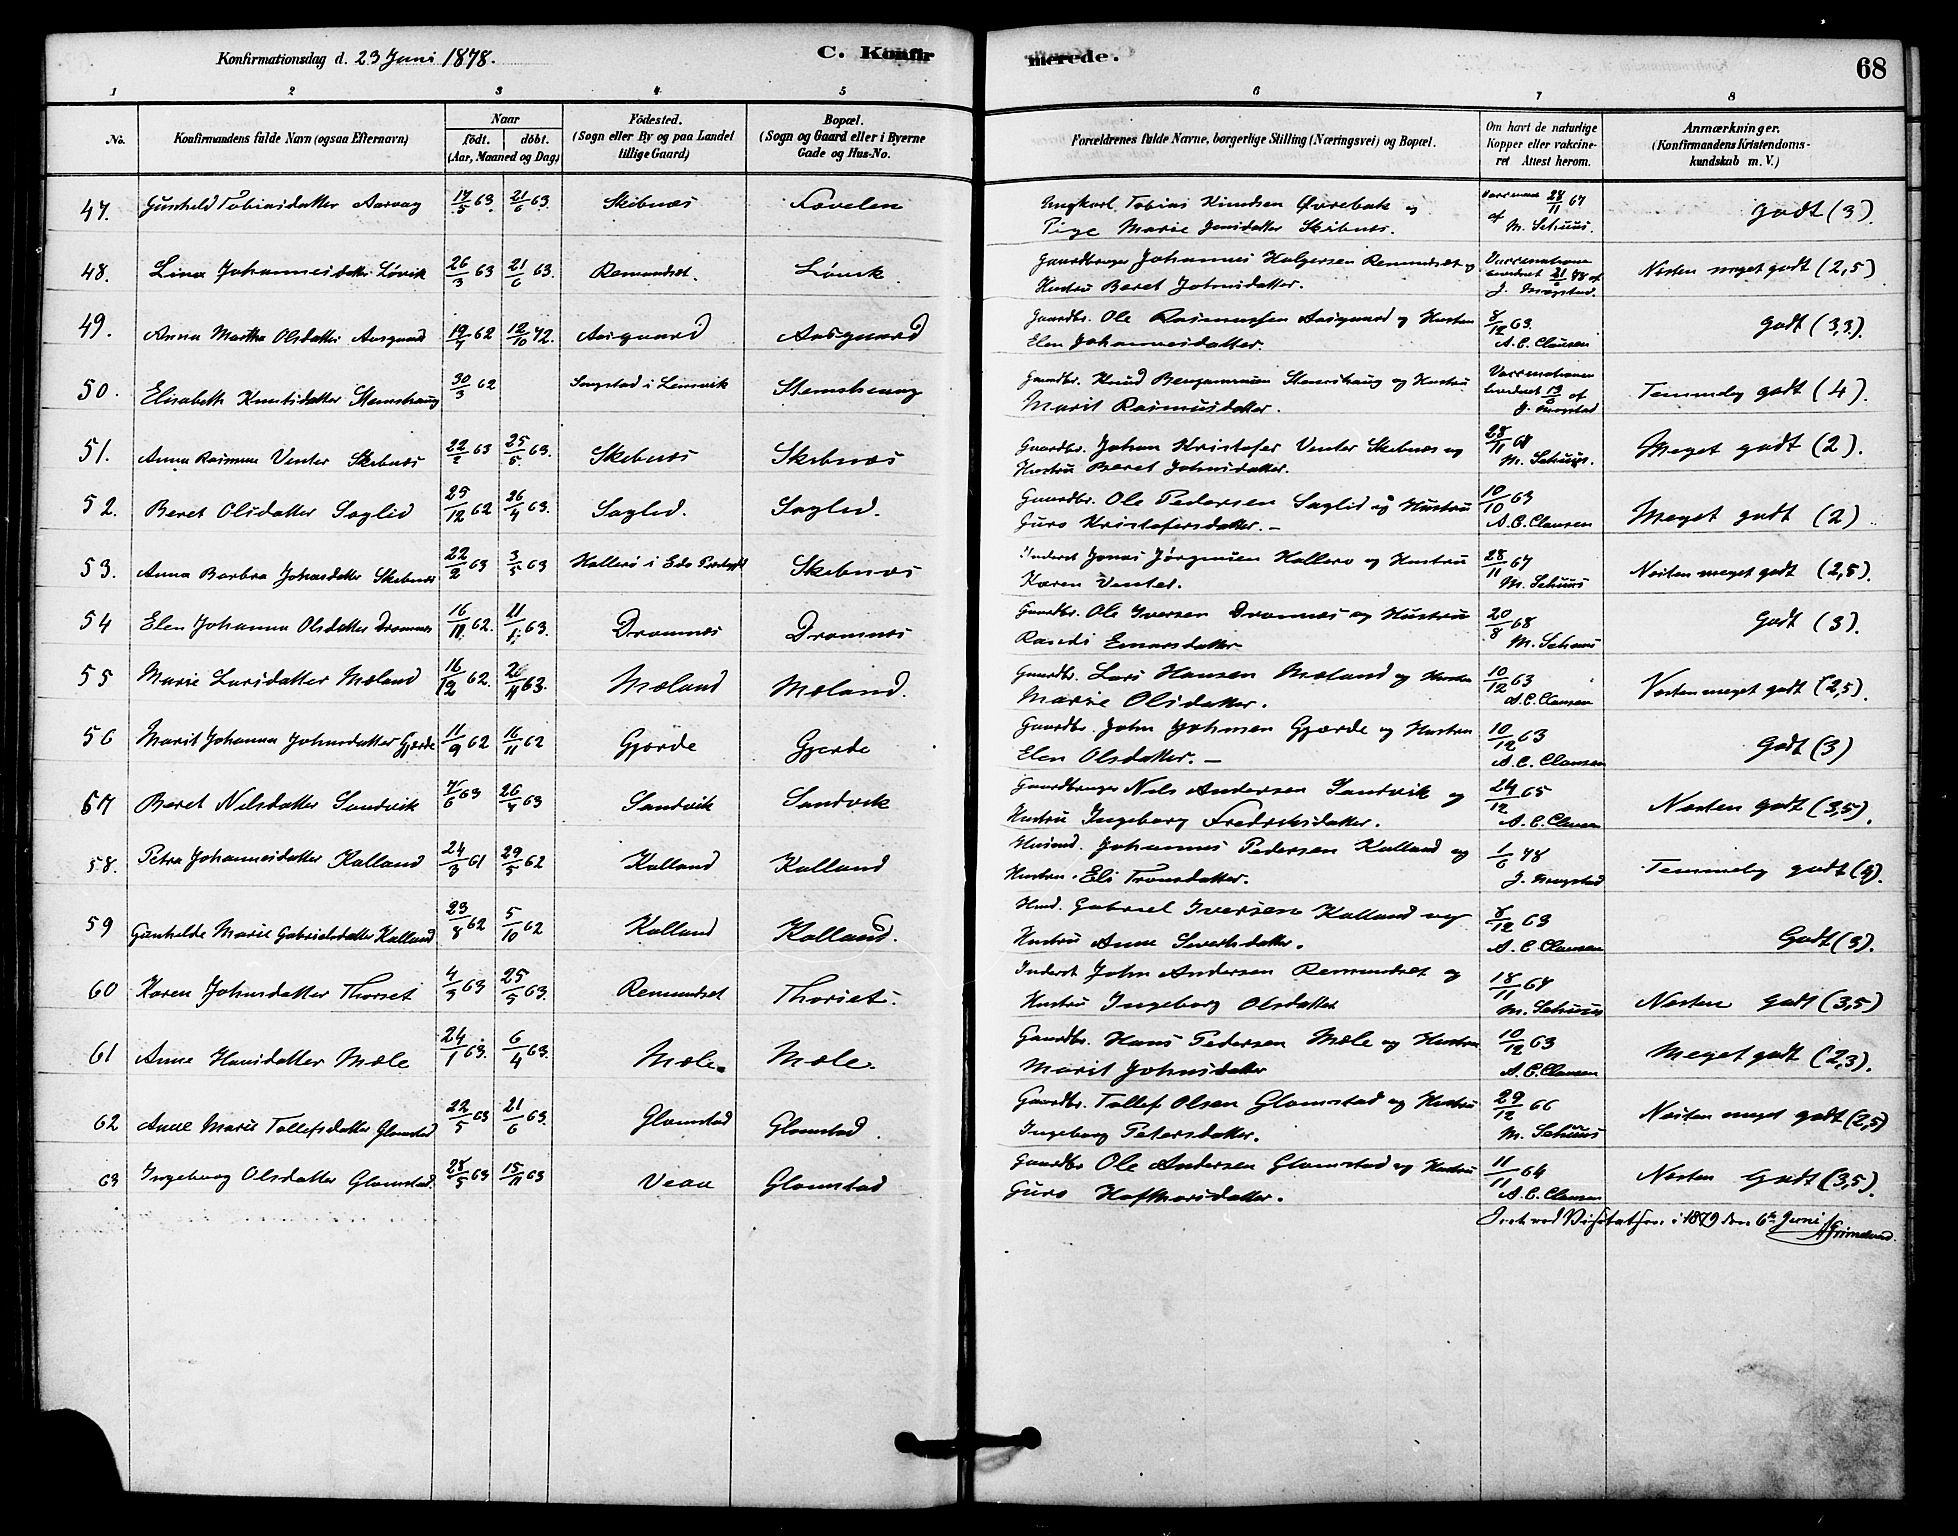 Konfirmationsdag d. 23 Juni 1878.
C. Konfirmerede.
68
1 2 3 4 5 6 7 8
No.
Konfirmandens fulde Navn (ogsaa Efternavn)
Naar
födt. döbt.
(Aar, Maaned og Dag)
Födested.
(Sogn eller By og paa Landet
tillige Gaard)
Bopæl.
(Sogn og Gaard eller i Byerne
Gade og Hus-No.
Forældrenes fulde Navne, borgerlige Stilling (Næringsvei) og Bopæl.
Om havt de naturlige
Kopper eller vakcine-
ret Attest herom.
Anmærkninger.
(Konfirmandens Kristendoms-
kundskab m. V.)
47. Gunhild Tobiasdatter Aarvag 17/5 63 21/6 63. Skibnæs Ungkarl Tobias Knudsen Øvrebak og 28/11 67 Godt (3).
Pige Marie Jonsdatter Skibnæs. af M. Schuus.
48. Lina Johannesdatter Løvik 26/3 63 21/6 63. Remundset. Løvik Gaardbruger Johannes Holgersen Remundset og Næsten meget godt (2,5)
Hustru Beret Johnsdatter. J. Mogstad.
49. Anna Martha Olsdatter Aasgaard 62 12/10 72. Aasgaard Aasgaard Gaardbr. Ole Rasmussen Aasgaard og Hustru 8/12 63. Godt (3,3).
Elen Johannesdatter. A. C. Clausen
50. Elisabeth Knutsdatter Stemshaug 30/3 62 i Lensvik Stemshaug Gaardbr. Knud Benjaminsen Stemshaug og Hustru Temmelig godt (4).
Marit Rasmusdatter. J. Mogstad
51. Anna Rasmine Venter Skibnæs 22/2 63 25/5 63. Skibnæs Skibnæs Gaardbr. Johan Kristofer Venter Skibnæs og 28/11 Meget godt (2).
Hustru Beret Johnsdatter. M. Schuus.
52. Beret Olsdatter Saglid 25/12 62 26/4 63. Saglid. Saglid. Gaardbr. Ole Pedersen Saglid og Hustru 10/10 63 Meget godt (2)
Guro Kristofersdatter. — A. C. Clausen
53. Anna Barbra Johansdatter Skibnæs 22/2 63 3/5 63 Hallerø i Edø Skibnæs Inderst Jonas Jørgensen Hallerø og Hustru 28/11 67 Næsten meget godt (2,5).
Karen Venter. M. Schuus
54 Elen Johanna Olsdatter Dromnæs 16/11 62. 11/1 63. Dromnæs Dromnæs Gaardbr. Ole Iversen Dromnæs og Hustru 20/8 68 Godt (3).
Randi Einarsdatter M. Schuus
55 Marie Larsdatter Mæland 16/12 62. 26/4 63. Mæland Mæland. Gaardbr. Lars Hansen Mæland og Hustru 10/12 63 Næsten meget godt (2,5).
Marie Olsdatter. A. C. Clausen
56 Marit Johanna Johnsdatter Gjerde 11/9 62 16/11 62 Gjørde Gjerde Gaardbr. John Johnsen Gjærde og Hustru 10/12 63 Godt (3)
Elen Olsdatter. — A. C. Clausen
57 Beret Nilsdatter Sandvik 7/6 63 26/7 63 Sandvik Sandvik Gaardbruger Nils Andersen Sandvik og 24/12 65 Næsten godt (3,5).
Hustru Ingeborg Fredriksdatter. A. C. Clausen
58. Petra Johannesdatter Kalland 24/3 61 29/5 62 Kalland Kalland Husmd. Johannes Pedersen Kalland og 1/6 78 Temmelig godt (4).
Hustru Eli Tronsdatter. J. Mogstad
59 Gunhilde Marie Gabrielsdatter Kalland 23/8 62 5/10 62 Kalland Kalland. Husmd. Gabriel Iversen Kalland og 8/12 63 Godt (3).
Hustru Anne Sivertsdatter. A. C. Clausen
60 Karen Johnsdatter Thorset 4/3 63 25/5 63. Remundset Thorset. Inderst John Andersen Remundset og 18/11 67 Næsten godt (3,5)
Hustru Ingeborg Olsdatter M. Schuus
61 Anne Hansdatter Mæle 24/1 63. 6/4 63. Mæle. Mæle. Gaardbr. Hans Pedersen Mæle og Hustru 10/12 63 Meget godt (2,3).
Marit Johnsdatter A. C. Clausen
62 Anne Marie Tollefsdatter Glomstad 22/5 63 21/6 63. Glomstad Glomstad. Gaardbr. Tollef Olsen Glomstad og Hustru 29/12 66 Næsten meget godt (2,5)
Ingeborg Petersdatter. M. Schuus
63 Ingeborg Olsdatter Glomstad. 28/5 63 15/11 63 Veaa Glomstad Gaardbr Ole Andersen Glomstad og Hustru 11/11 64 Næsten Godt (3,5).
Guro Hafthorsdatter. A. C. Clausen
ved Visitatsen i 1879 den 6te Juni